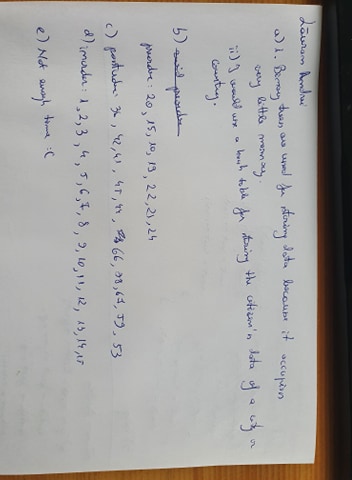 a) i. Binary trees are used for storing data because it occupies
very little memory.
ii) I would use a hash table for storing the citizen's data of a city or
country.
b)
preorder: 20, 15, 10, 19, 22, 21, 24
c) postorder: 34, 42, 41, 45, 44, 66, 68, 67, 59, 53
d) inorder: 1, 2, 3, 4, 5, 6, 7, 8, 9, 10, 11, 12, 13, 14, 15
e) Not enough time :(